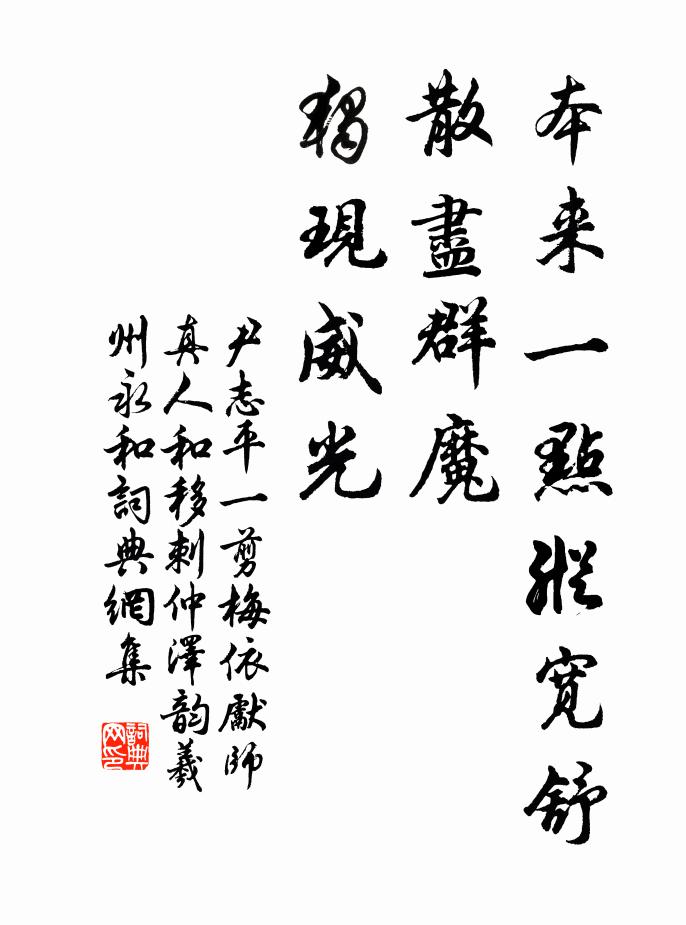 本来一點縱寬舒
散盡群魔
獨現威光
尹志平一剪梅依獻師
真人和移剌仲澤韵羲
州永和詞典網集
詞典
网印